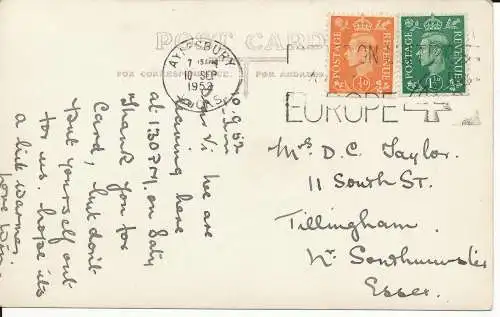 POST CARD
FOR CORRESPONDENCE
FOR ADDRESS
AYLESBURY
10 SEP
1952
BUCKS
POSTAGE REVENUE
POSTAGE REVENUE
1D
ON
EUROPE
10.9.52
Vi. We are
leaving here
at 1.30 P.M. on Saty
Thank you for
Card, but don't
put yourself out
for us. hope its
a bit warmer.
love
Mrs D. C. Taylor.
11 South St.
Tillingham.
Nr Southminster
Essex.